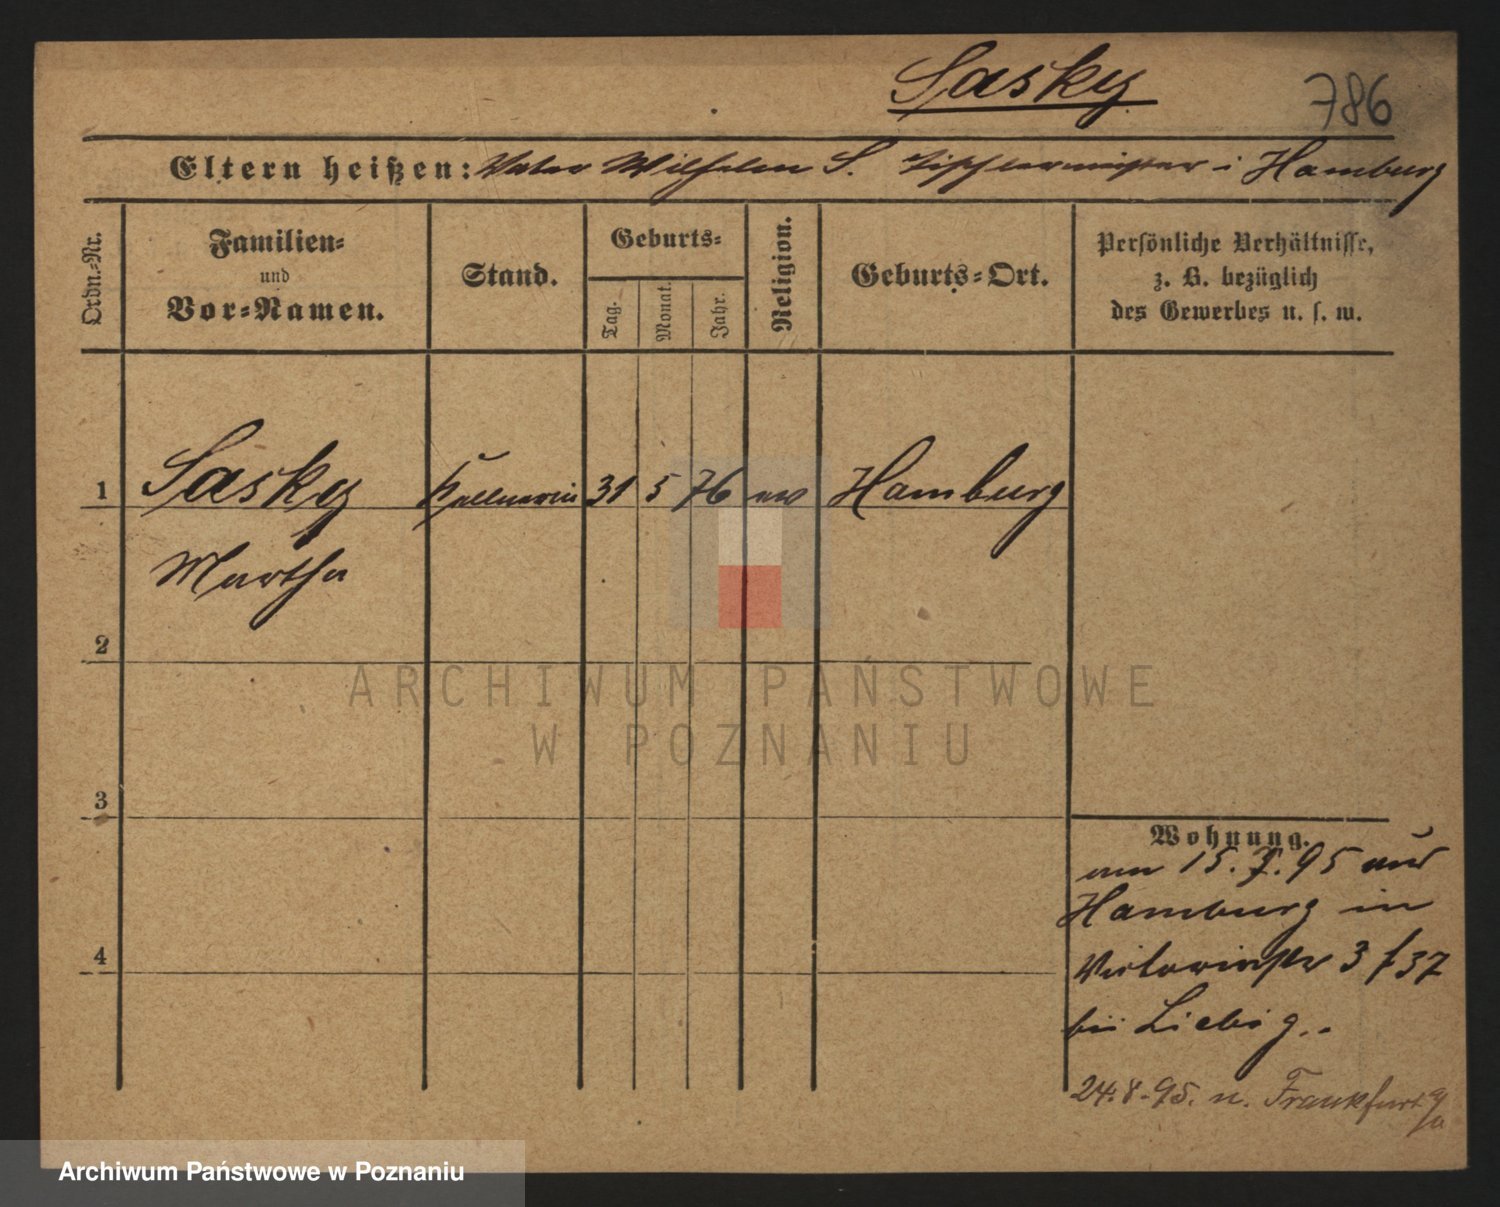 Sasky
786
Eltern heißen: Vater Wilhelm S. Tischlermeister i Hamburg
Ordn.-Nr.
Familien-
und
Vor-Namen.
Stand.
Geburts-
Tag.
Monat.
Jahr.
Religion.
Geburts-Ort.
Persönliche Verhältnisse,
z. B. bezüglich
des Gewerbes u. s. w.
1 Sasky Kellnerin 31 5 76 ev Hamburg
Martha
2
3
4
ARCHIWUM PAŃSTWOWE
W POZNANIU
Wohnung.
am 15. 7. 95 aus
Hamburg in
Victoriastr 3 f 37
bei Liebig..
24.8.95. n. Frankfurt a/o
Archiwum Państwowe w Poznaniu